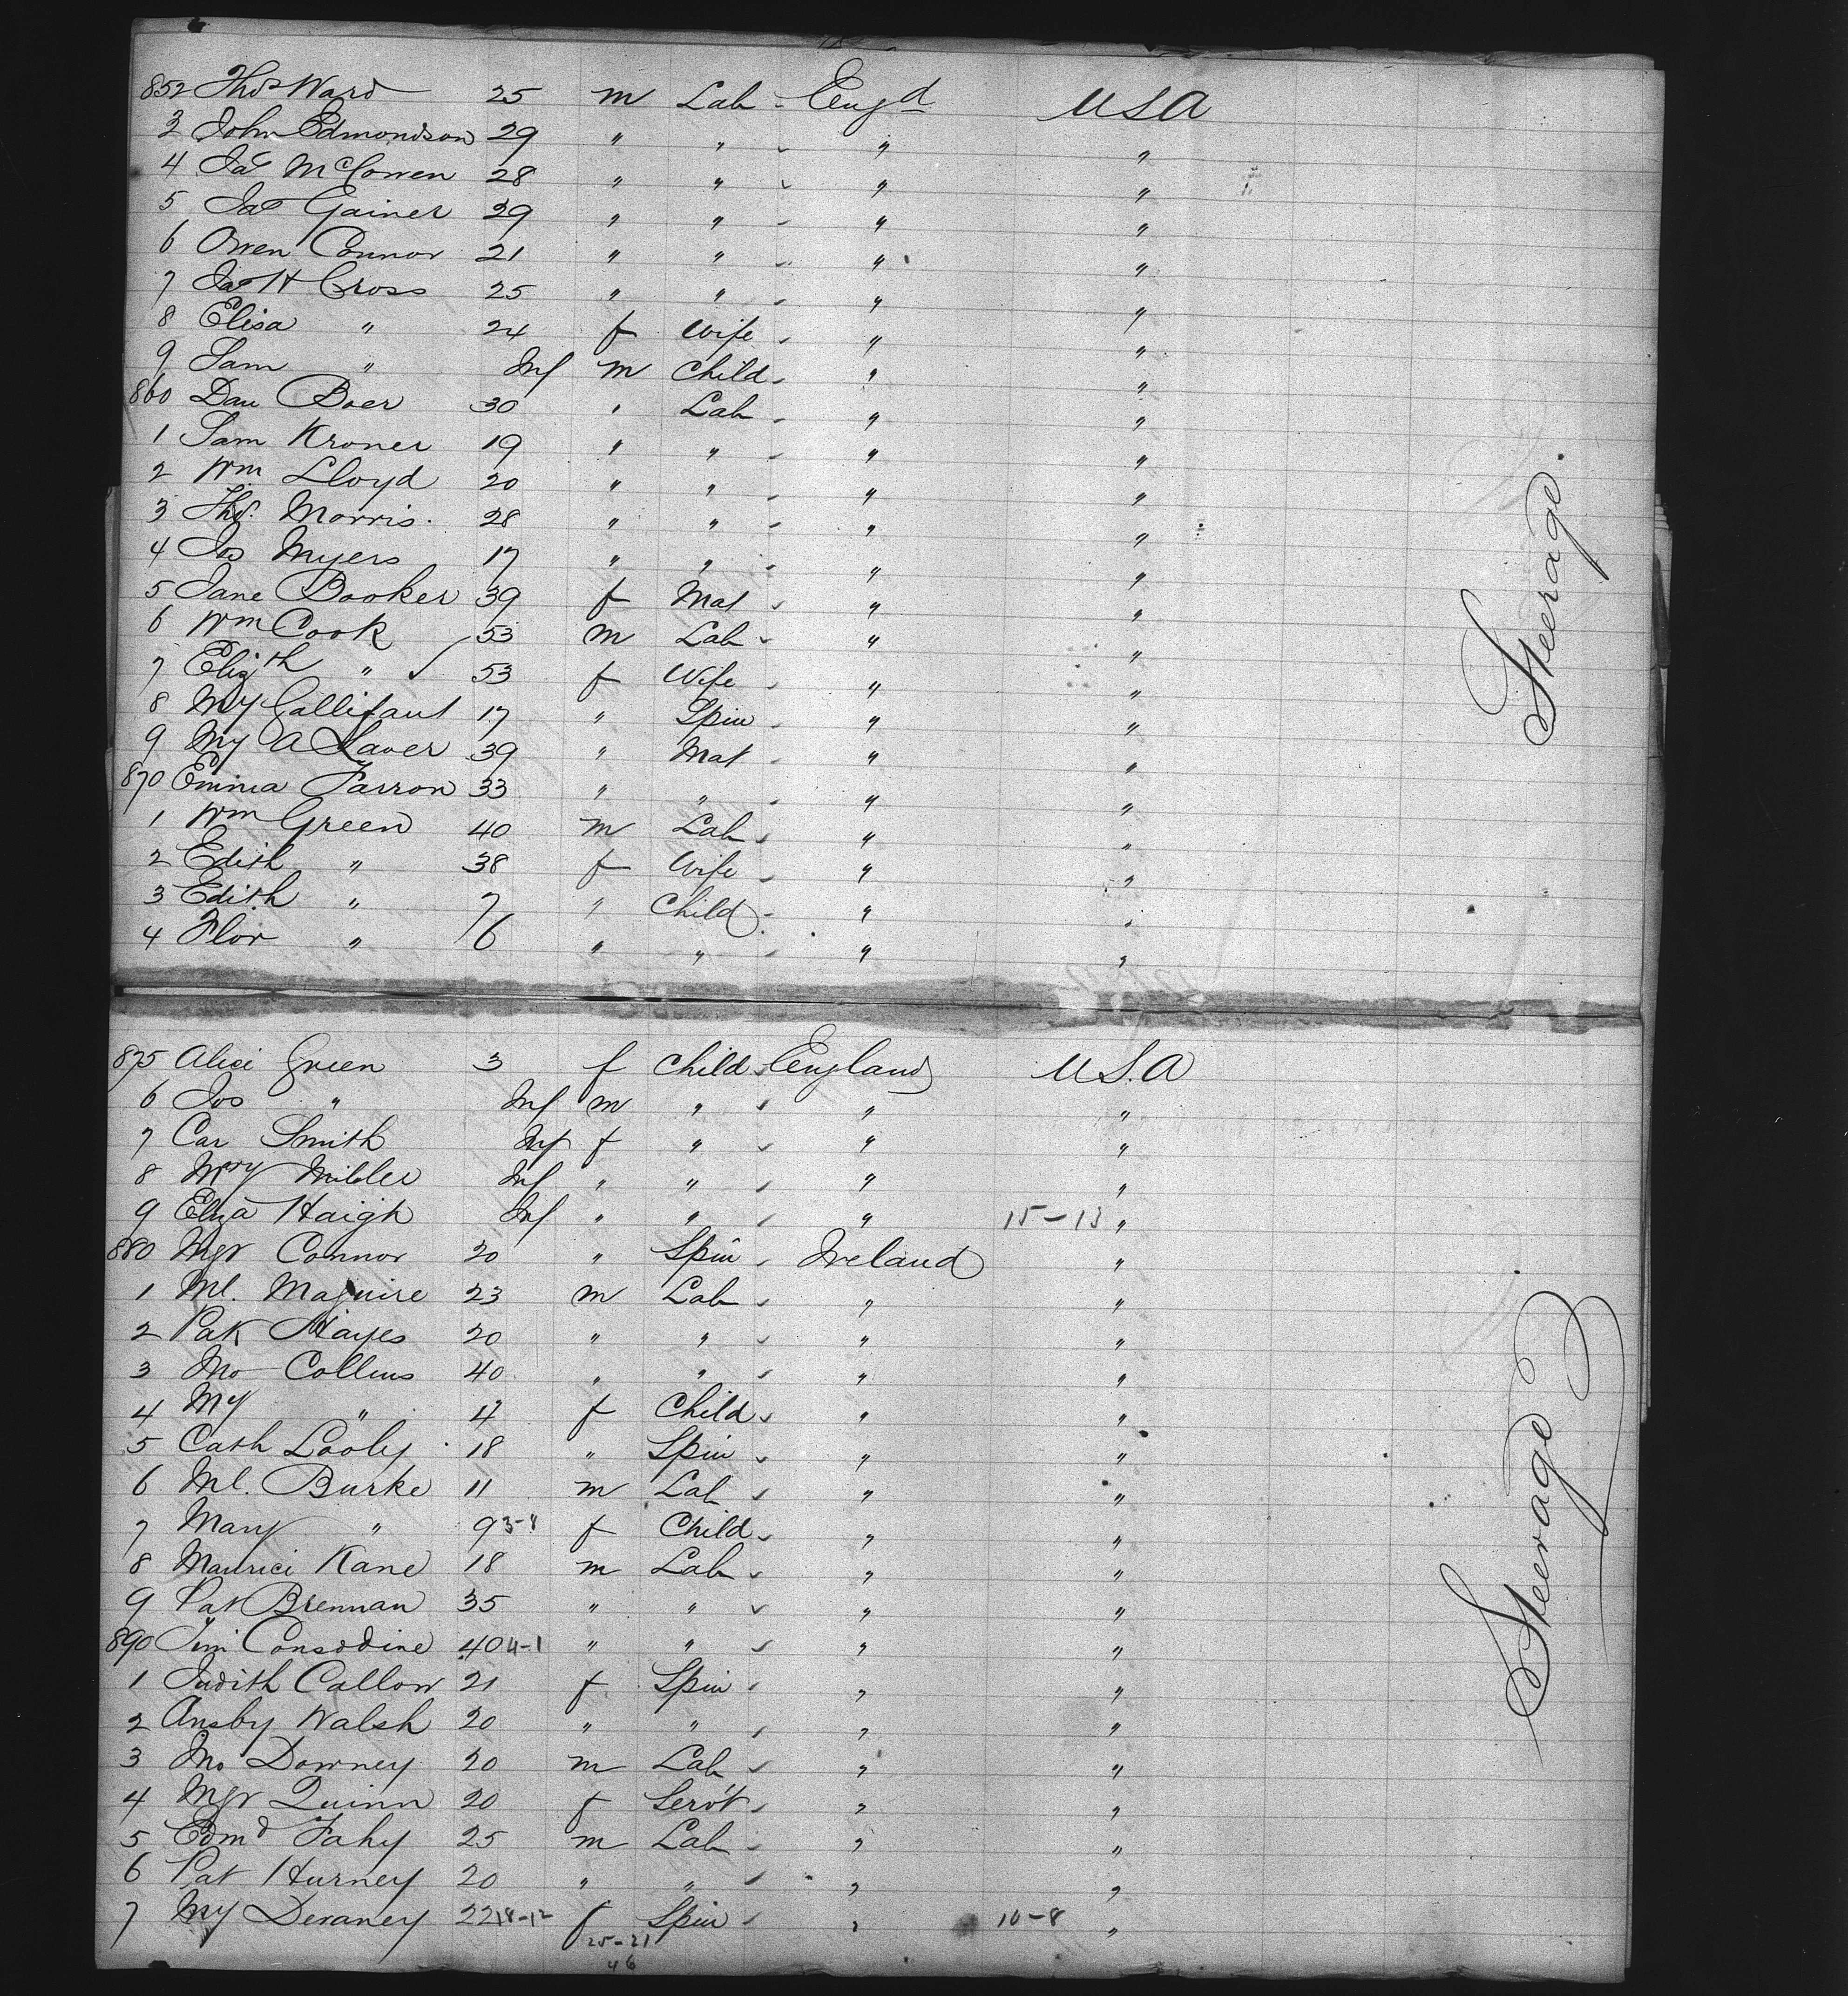 852 Thos Ward 25 m Lab Engd USA
3 John Edmondson 29 " " " "
4 Jas McCowen 28 " " " "
5 Jas Gainer 29 " " " "
6 Owen Connor 21 " " " "
7 Jas H Cross 25 " " " "
8 Elisa " 24 f Wife " "
9 Sam " Inf m Child " "
860 Dan Boer 30 " Lab " "
1 Sam Kroner 19 " " " "
2 Wm Lloyd 20 " " " "
3 Thos. Morris. 28 " " " "
4 Jos Myers 17 " " " "
5 Jane Booker 39 f Mat " "
6 Wm Cook 53 m Lab " "
7 Elizth " 53 f Wife " "
8 My Gallifant 17 " Spin " "
9 My A Laver 39 " Mat " "
870 Emma Farron 33 " " " "
1 Wm Green 40 m Lab " "
2 Edith " 38 f Wife " "
3 Edith " 7 " Child " "
4 Flor " 6 " " " "
Steerage.
875 Alice Green 3 f Child England U.S.A
6 Jos " Inf m " " "
7 Car Smith Inf f " " "
8 Mry Miller Inf " " " "
9 Eliza Haigh Inf " " " 15-13 "
880 Mgr Connor 20 " Spin Ireland "
1 Ml. Maguire 23 m Lab " "
2 Pak Hayes 20 " " " "
3 Jno Collins 40 " " " "
4 My " 4 f Child " "
5 Cath Looly 18 " Spin " "
6 Ml. Burke 11 m Lab " "
7 Mary " 9 3-8 f Child " "
8 Maurice Kane 18 m Lab " "
9 Pat Brennan 35 " " " "
890 Tim Consodine 40 4-1 " " " "
1 Judith Callow 21 f Spin " "
2 Ansby Walsh 20 " " " "
3 Jno Downey 20 m Lab " "
4 Mgr Quinn 20 f Servt " "
5 Edmd Fahy 25 m Lab " "
6 Pat Hurney 20 " " " "
7 My Devaney 22 18-12 f Spin " 10-8 "
25-21
46
Steerage